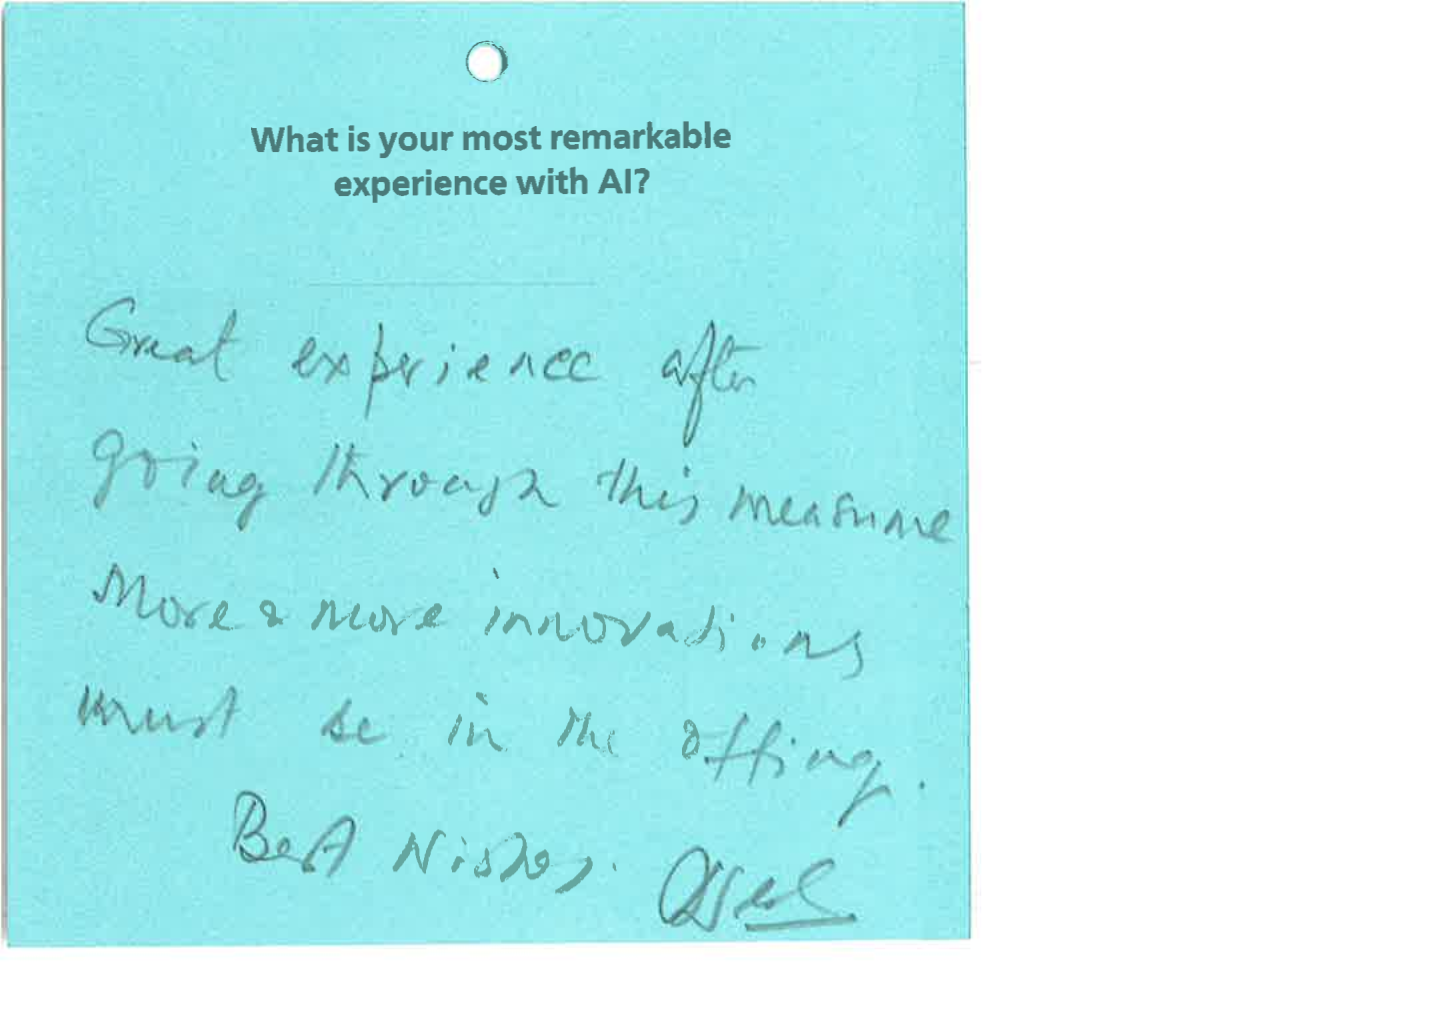 What is your most remarkable
experience with AI?
Great experience after
going through this measure
More & more innovations
must be in the offing.
Best Wishes.